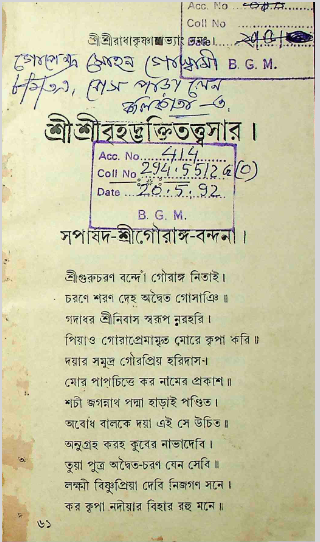 Acc. No
Coll No
Date
B. G. M.
শ্রীশ্রীরাধাকৃষ্ণাভ্যাং নমঃ।
গোপেন্দ্র মোহন গোস্বামী
লেন
কলকাতা-৩
শ্রীশ্রীবৃহদ্ভক্তিতত্ত্বসার।
Acc. No. 414
Coll No 294.5512
Date 20.5.92
B. G. M.
সপার্ষদ-শ্রীগৌরাঙ্গ-বন্দনা।
শ্রীগুরুচরণ বন্দোঁ গৌরাঙ্গ নিতাই।
চরণে শরণ দেহ অদ্বৈত গোসাঞি॥
গদাধর শ্রীনিবাস স্বরূপ নরহরি।
পিয়াও গোরাপ্রেমামৃত মোরে কৃপা করি॥
দয়ার সমুদ্র গৌরপ্রিয় হরিদাস।
মোর পাপচিত্তে কর নামের প্রকাশ॥
শচী জগন্নাথ পদ্মা হাড়াই পণ্ডিত।
অবোধ বালকে দয়া এই সে উচিত॥
অনুগ্রহ করহ কুবের নাভাদেবি।
তুয়া পুত্র অদ্বৈত-চরণ যেন সেবি॥
লক্ষ্মী বিষ্ণুপ্রিয়া দেবি নিজগণ সনে।
কর কৃপা নদীয়ার বিহার রহু মনে॥
৬১